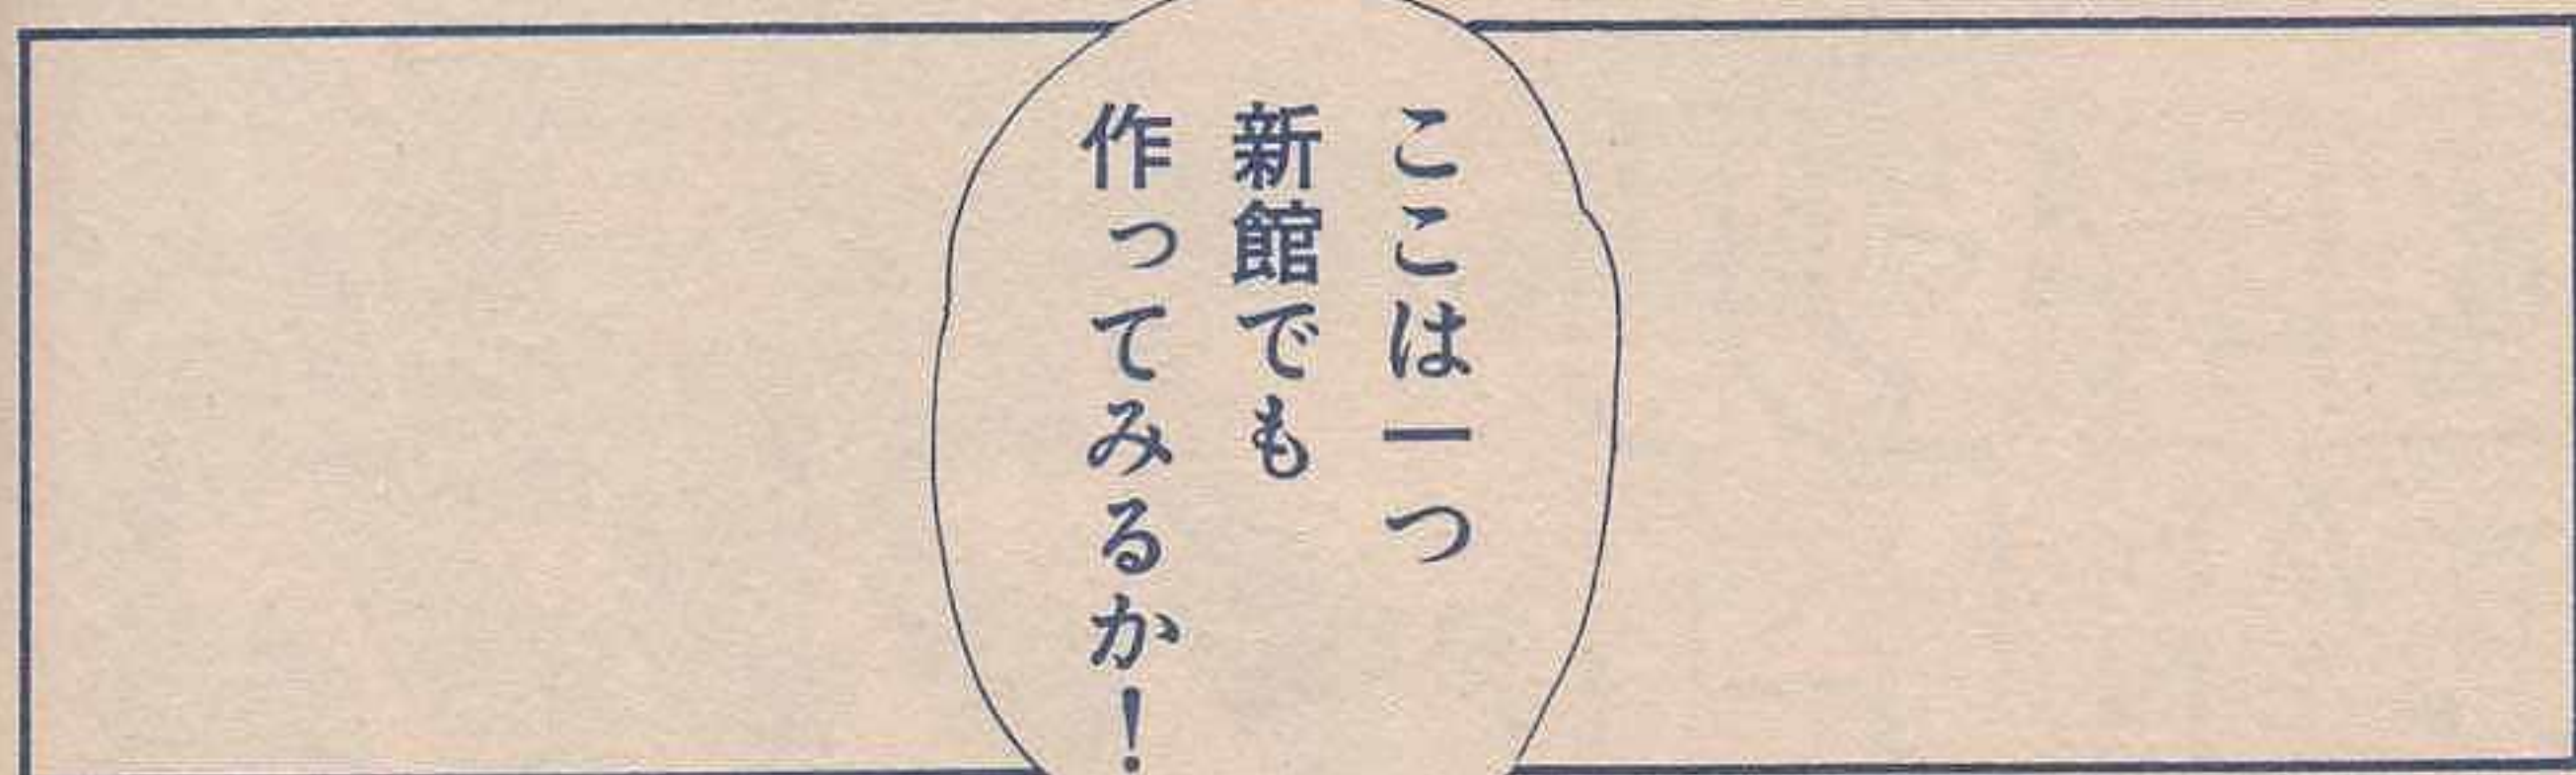 ここは一つ
新館でも
作ってみるか！